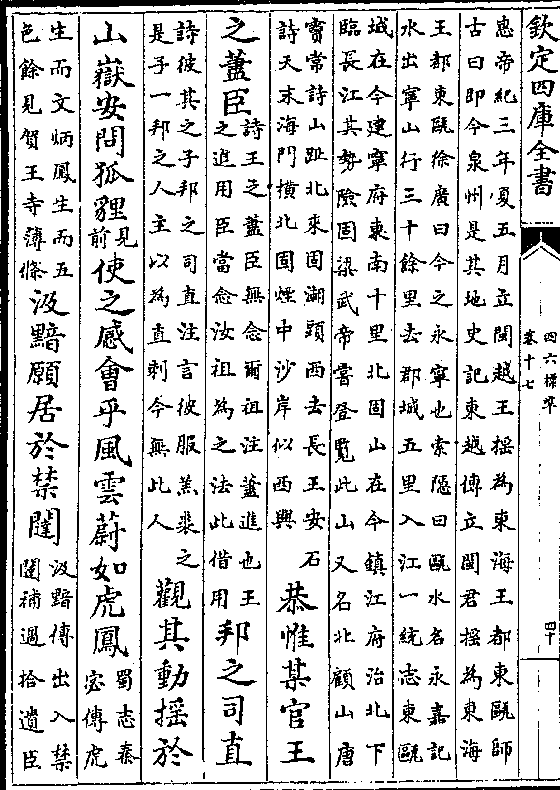 欽定四庫全書
四六標準
卷十七
四十
惠帝紀三年夏五月立閩越王搖為東海王都東甌師
古曰即今泉州是其地史記東越傳立閩君搖為東海
王都東甌徐廣曰今之永寧也索隱曰甌水名永嘉記
水出寧山行三十餘里去郡城五里入江一統志東甌
城在今建寧府東南十里北固山在今鎮江府治北下
臨長江其勢險固梁武帝嘗登覽此山又名北顧山唐
竇常詩山趾北來固湖頭西去長王安石
詩天末海門橫北固煙中沙岸似西興
恭惟某官王
之藎臣
詩王之藎臣無念爾祖注藎進也王
之進用臣當念汝祖為之法此借用
邦之司直
詩彼其之子邦之司直注言彼服羔裘之
是子一邦之人主以為直刺今無此人
觀其動搖於
山嶽安問狐貍
見
前
使之感會乎風雲蔚如虎鳳
蜀志秦
宓傳虎
生而文炳鳳生而五
色餘見賀王寺薄條
汲黯願居於禁闥
汲黯傳出入禁
闥補過拾遺臣